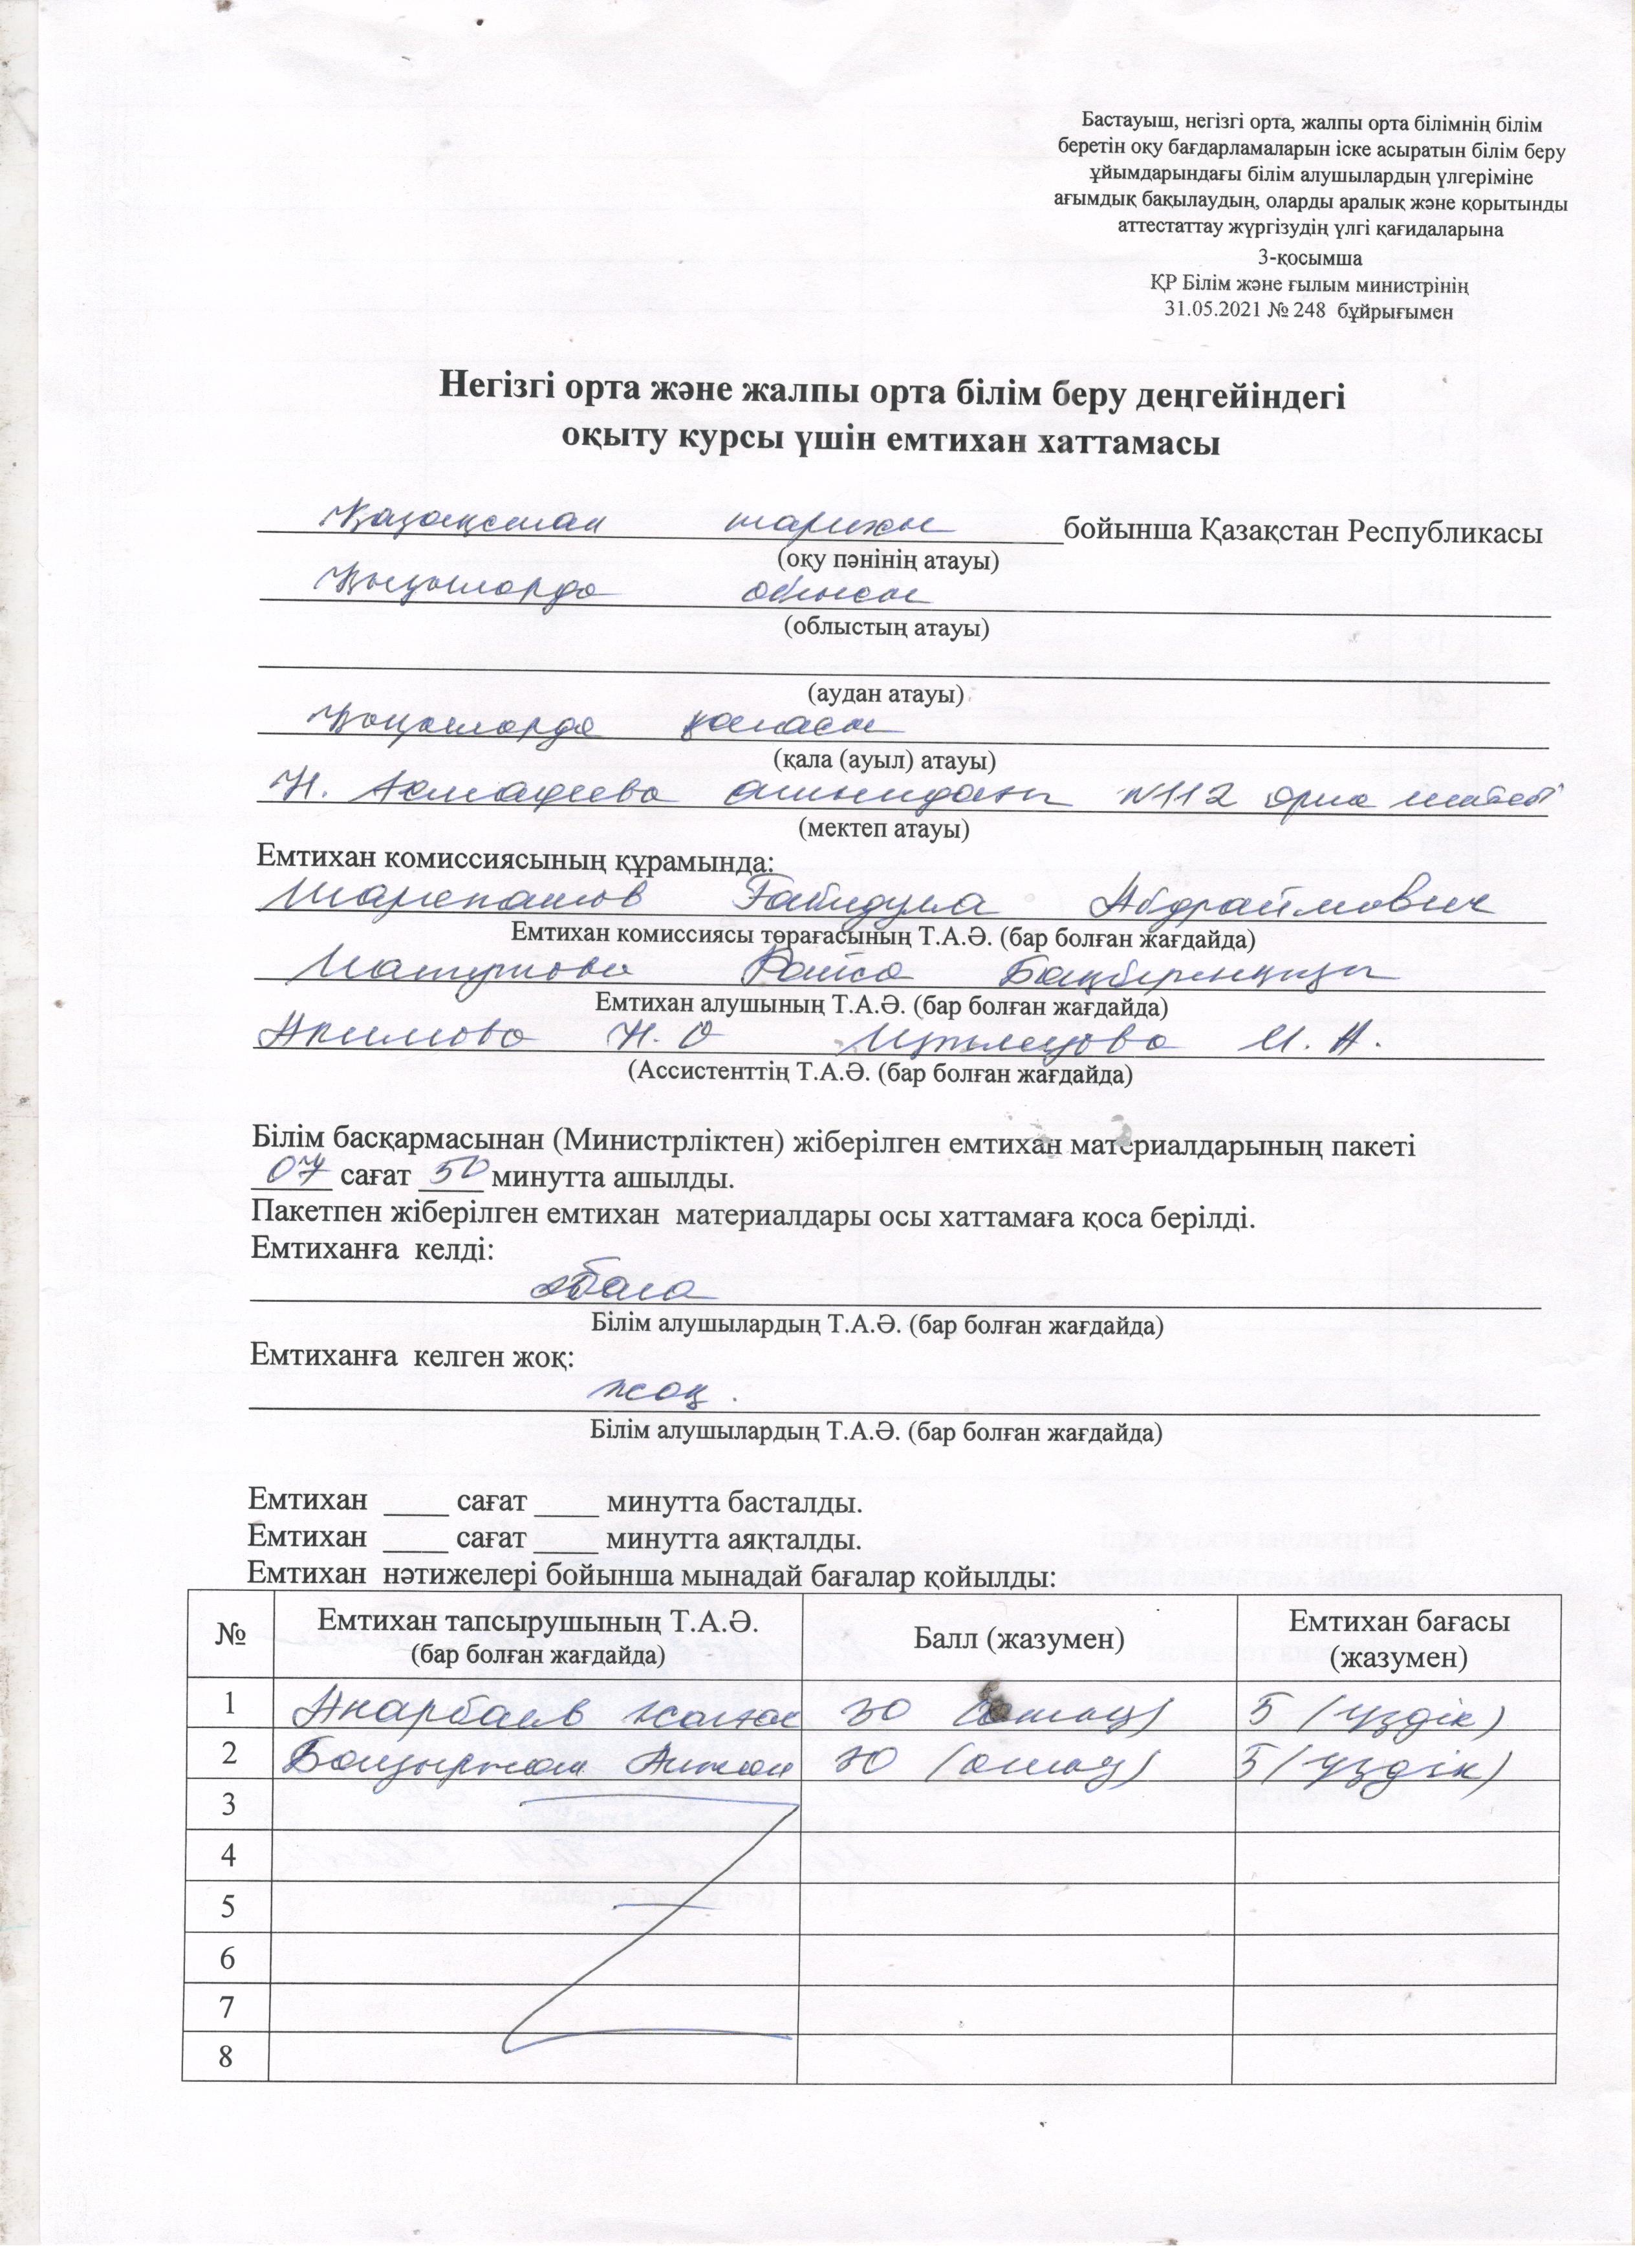 Бастауыш, негізгі орта, жалпы орта білімнің білім
беретін оқу бағдарламаларын іске асыратын білім беру
ұйымдарындағы білім алушылардың үлгеріміне
ағымдық бақылаудың, оларды аралық және қорытынды
аттестаттау жүргізудің үлгі қағидаларына
3-қосымша
ҚР Білім және ғылым министрінің
31.05.2021 № 248 бұйрығымен
Негізгі орта және жалпы орта білім беру деңгейіндегі
оқыту курсы үшін емтихан хаттамасы
Қазақстан тарихы бойынша Қазақстан Республикасы
(оқу пәнінің атауы)
Қызылорда облысы
(облыстың атауы)
(аудан атауы)
Қызылорда қаласы
(қала (ауыл) атауы)
атындағы №112 орта мектебі
(мектеп атауы)
Емтихан комиссиясының құрамында:
Абдраймович
Емтихан комиссиясы төрағасының Т.А.Ә. (бар болған жағдайда)
Раиса
Емтихан алушының Т.А.Ә. (бар болған жағдайда)
Акимова Н. О
(Ассистенттің Т.А.Ә. (бар болған жағдайда)
Білім басқармасынан (Министрліктен) жіберілген емтихан материалдарының пакеті
07 сағат 50 минутта ашылды.
Пакетпен жіберілген емтихан материалдары осы хаттамаға қоса берілді.
Емтиханға келді:
2 бала
Білім алушылардың Т.А.Ә. (бар болған жағдайда)
Емтиханға келген жоқ:
жоқ.
Білім алушылардың Т.А.Ә. (бар болған жағдайда)
Емтихан ____ сағат ____ минутта басталды.
Емтихан ____ сағат ____ минутта аяқталды.
Емтихан нәтижелері бойынша мынадай бағалар қойылды:
№ Емтихан тапсырушының Т.А.Ә. (бар болған жағдайда) Балл (жазумен) Емтихан бағасы (жазумен)
1 Анарбаев 30 (отыз) 5 (үздік)
2 30 (отыз) 5 (үздік)
3
4
5
6
7
8